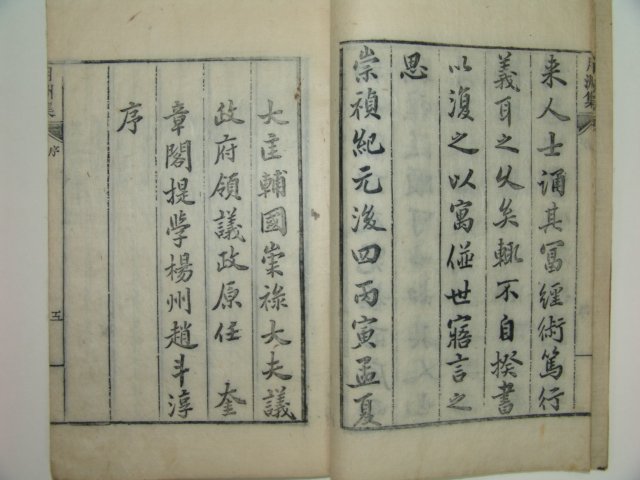 来人士诵其冨經術篤行
義耳之久矣輙不自揆書
以復之以寓偘世寤言之
思
崇禎紀元後四丙寅孟夏
大匡輔國崇祿大夫議
政府領議政原任 奎
章閣提学楊州趙斗淳
序
序
五